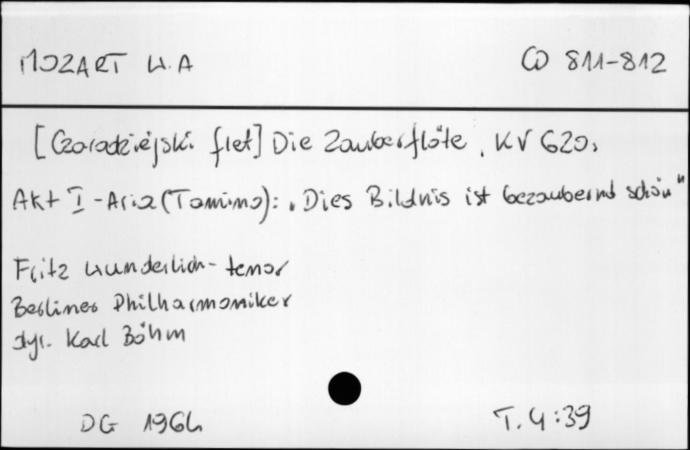 MOZART W.A
CD 811-812
[Czarodziejski flet] Die Zauberflöte, KV 620,
Akt I - Aria (Tamino): "Dies Bildnis ist bezaubernd schön"
Fritz Wunderlich - tenor
Berliner Philharmoniker
dyr. Karl Böhm
DG 1964
T. 4:39